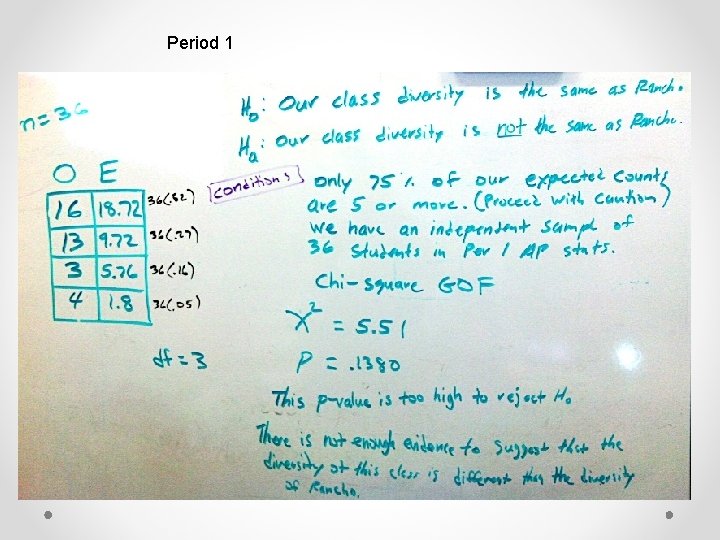 Period 1
n=36
H₀: Our class diversity is the same as Ranch.
Hₐ: Our class diversity is not the same as Rancho.
O E
16 18.72 36(.52)
13 9.72 36(.27)
3 5.76 36(.16)
4 1.8 36(.05)
df=3
conditions
only 75% of our expected counts
are 5 or more. (Proceed with caution)
we have an independent sampl of
36 students in Per 1 AP stats.
Chi-square GOF
X² = 5.51
P = .1380
This p-value is too high to reject H₀
There is not enough evidence to suggest that the
diversity of this class is different than the diversity
of Rancho.